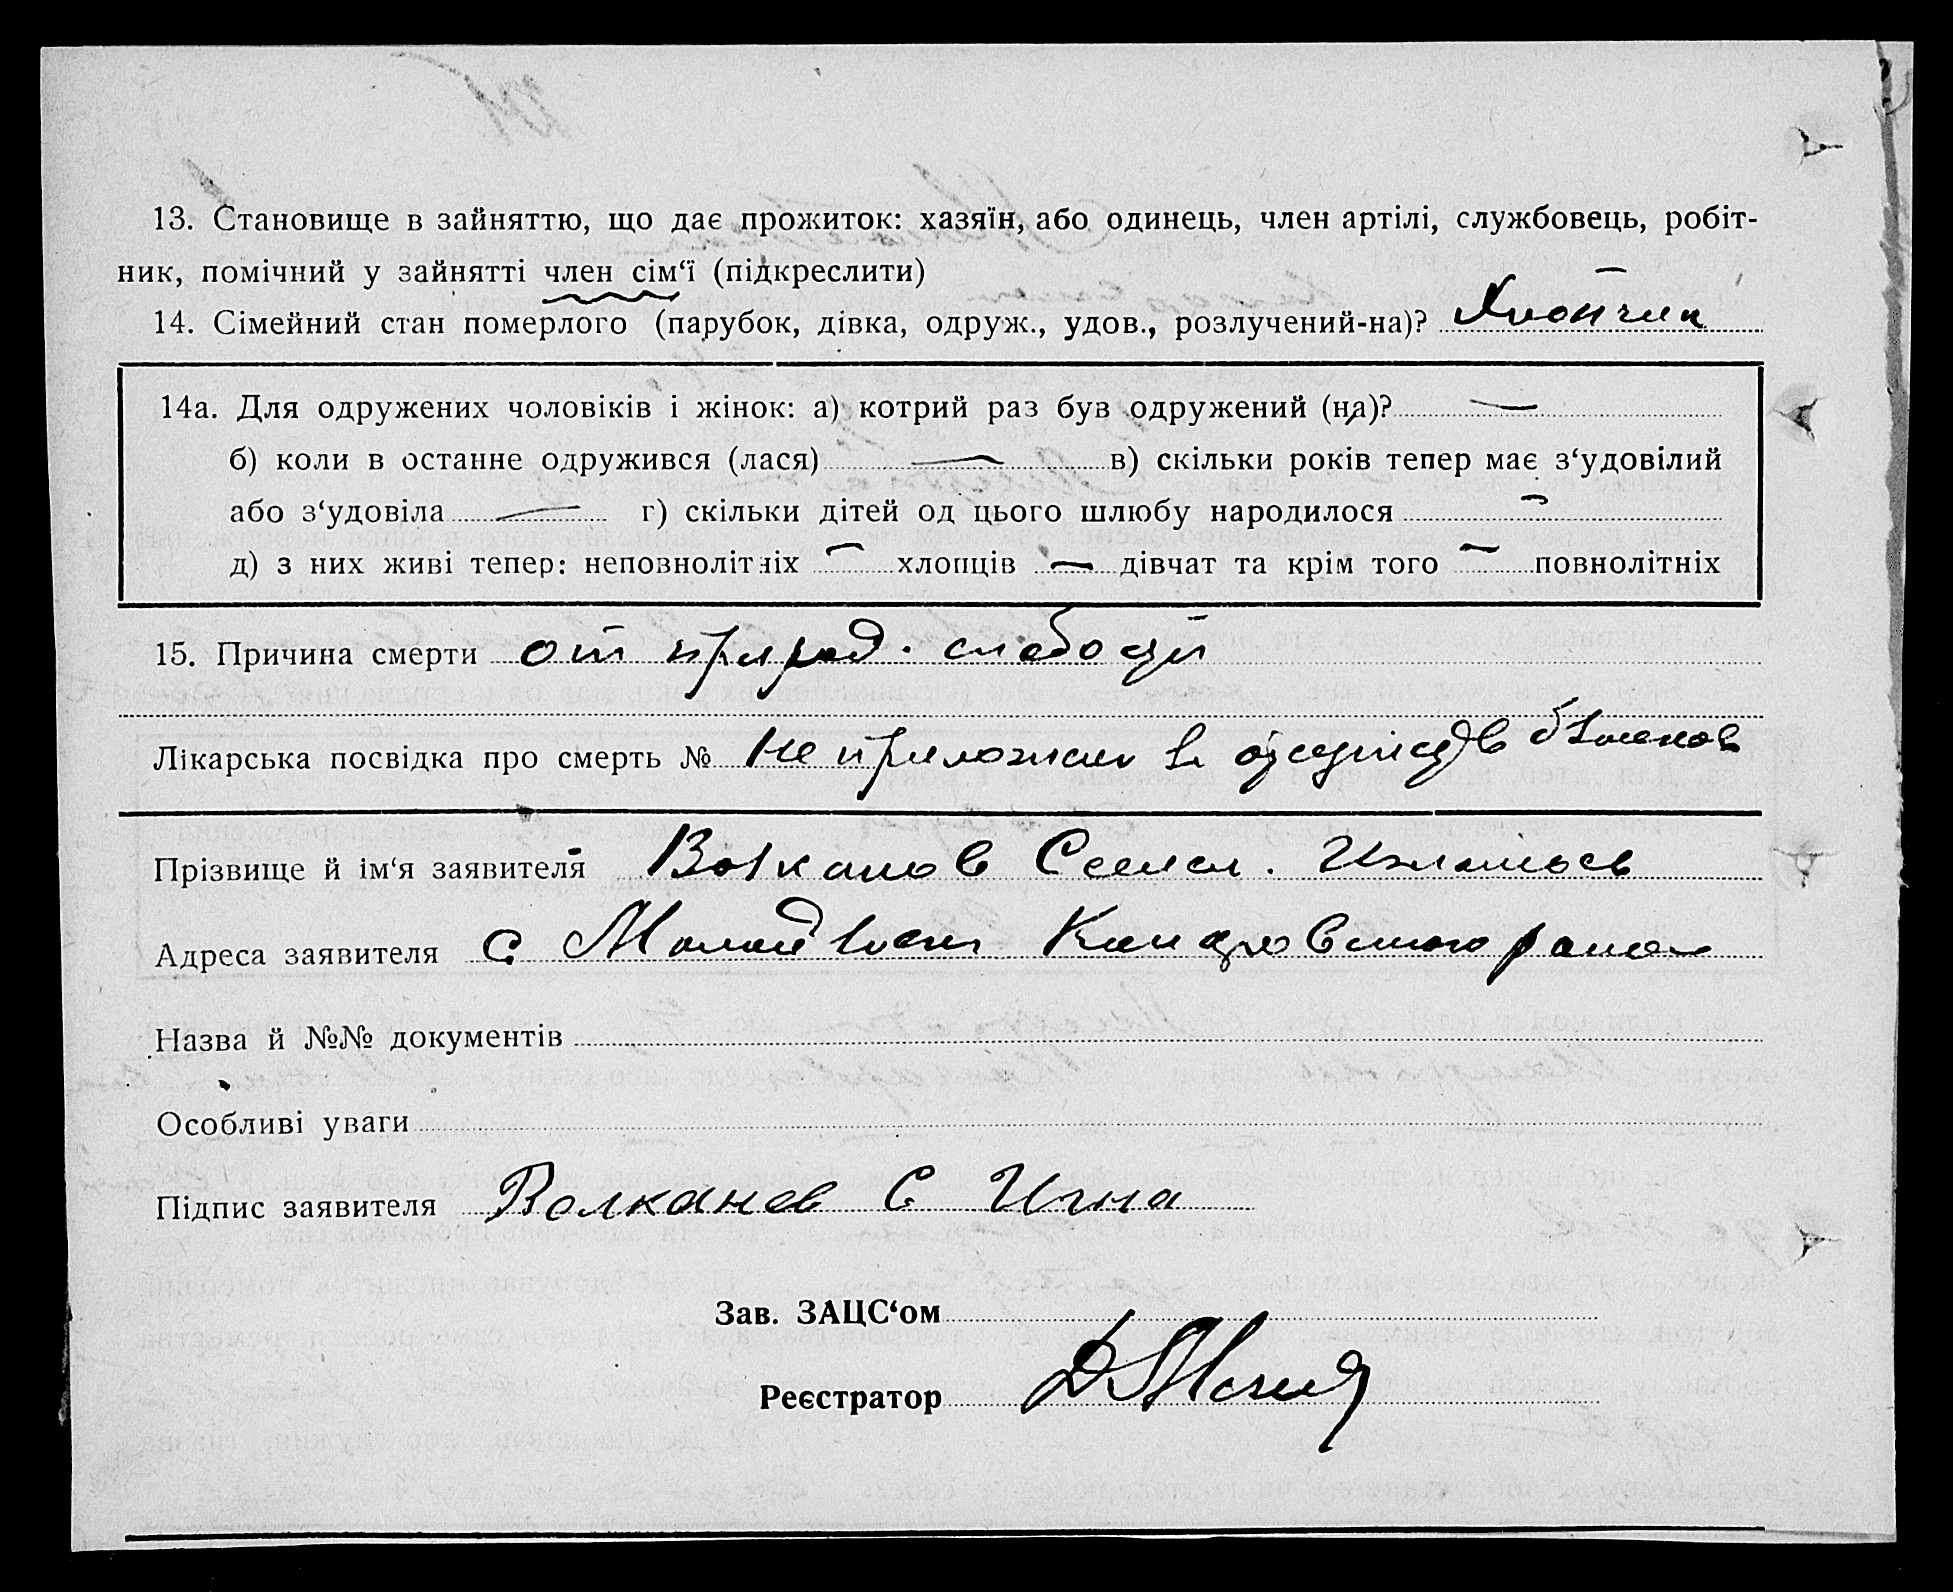 13. Становище в зайняттю, що дає прожиток: хазяїн, або одинець, член артілі, службовець, робіт-
ник, помічний у зайнятті член сім‘ї (підкреслити)
14. Сімейний стан померлого (парубок, дівка, одруж., удов., розлучений-на)? Хлопчик
14а. Для одружених чоловіків і жінок: а) котрий раз був одружений (на)? —
б) коли в останне одружився (лася) — в) скільки років тепер має з‘удовілий
або з‘удовіла — г) скільки дітей од цього шлюбу народилося —
д) з них живі тепер: неповнолітніх — хлопців — дівчат та крім того — повнолітніх
15. Причина смерти от прирад. слабоци
Лікарська посвідка про смерть № не приложен в
Прізвище й ім‘я заявителя Волканов Семен.
Адреса заявителя с района
Назва й №№ документів
Особливі уваги
Підпис заявителя Волканов С Игна
Зав. ЗАЦС‘ом
Реєстратор